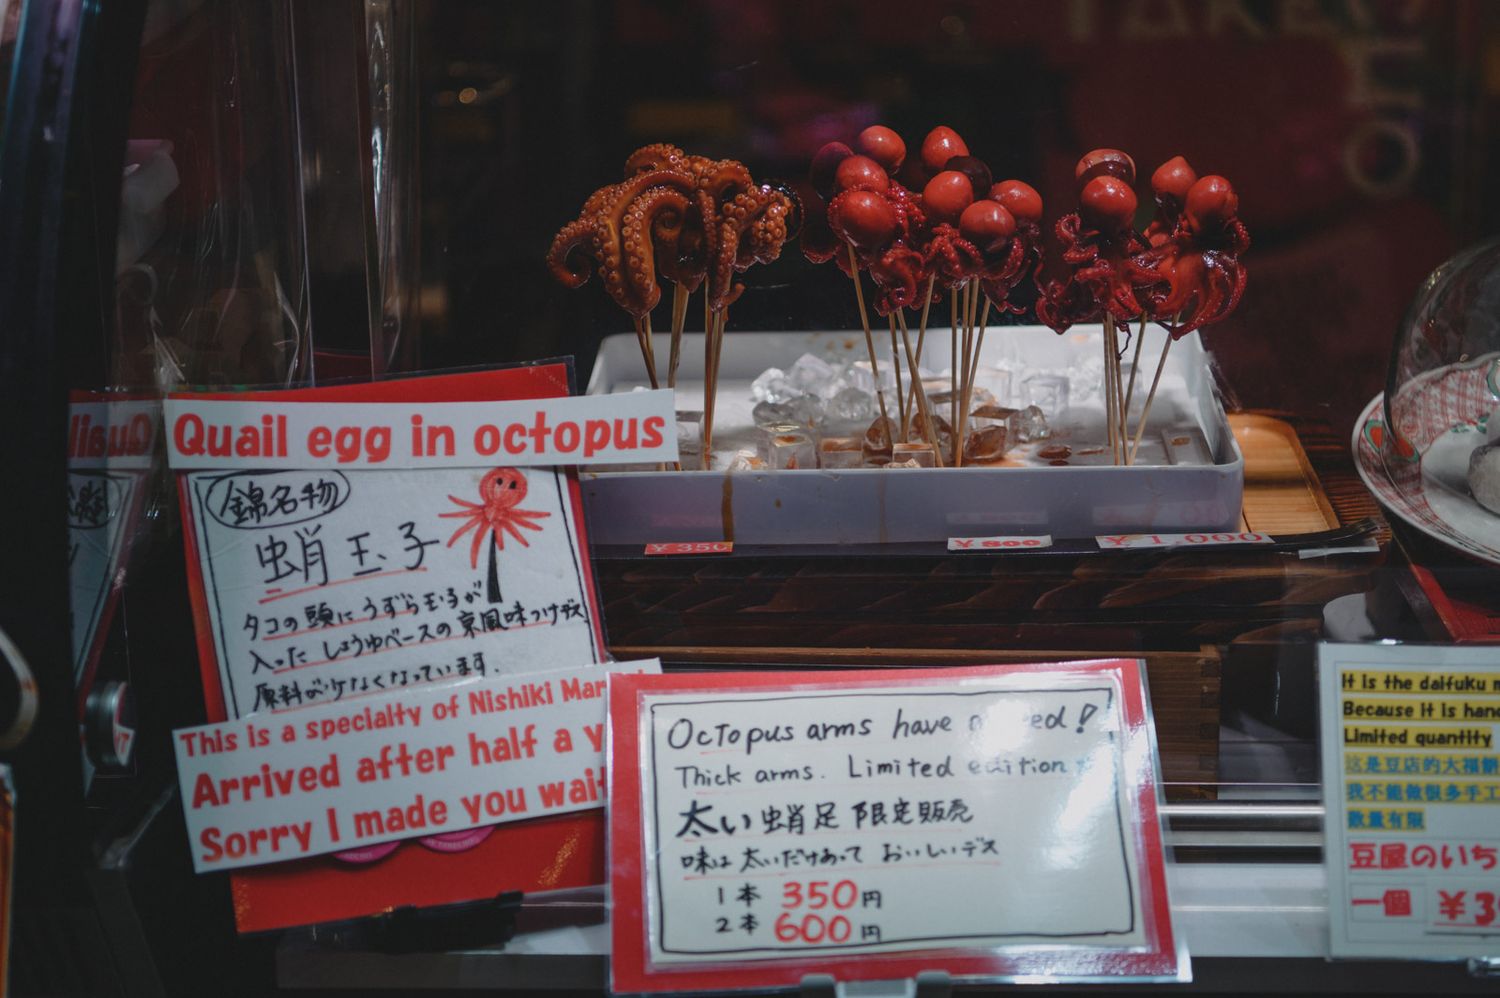 Quail egg in octopus
錦名物
蛸玉子
タコの頭にうずら玉子が
入った しょうゆベースの京風味つけデス
原料が少なくなっています.
This is a specialty of Nishiki Mar
Arrived after half a y
Sorry I made you wait
¥350
¥800
¥1,000
Octopus arms have
Thick arms. Limited edition
太い蛸足 限定販売
味は太いだけあって おいしいデス
1本 350円
2本 600円
It is the daifuku m
Because it is hand
Limited quantity
这是豆店的大福餅
我不能做很多手工
数量有限
豆屋のいち
一個 ¥3